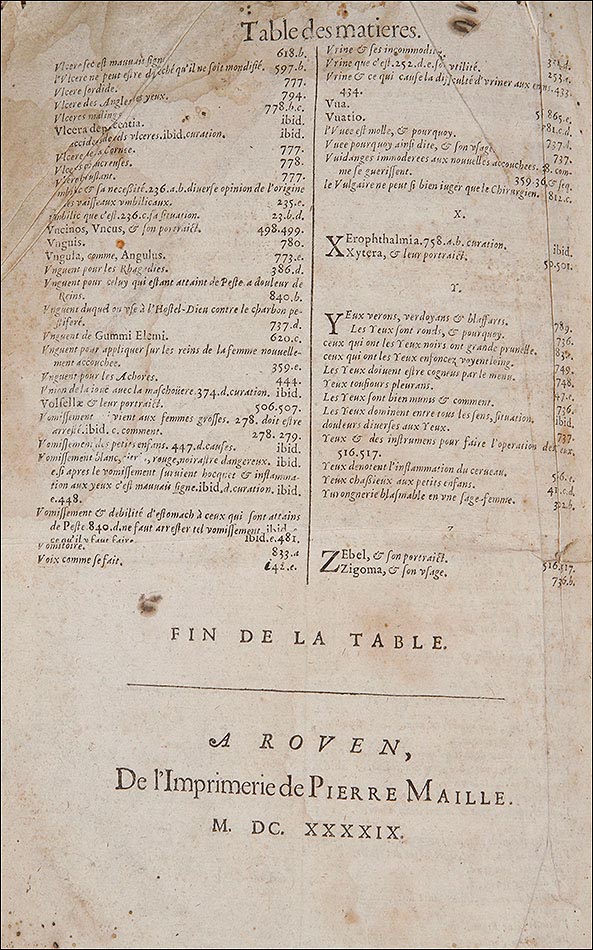 Table des matieres.
Vlcere sec est mauuais signe 618.b.
l'Vlcere ne peut estre desseché qu'il ne soit mondifié. 597.b.
Vlcere sordide. 777.
Vlcere des Angles & yeux. 794.
Vlceres malings 778.b.c.
Vlcera ibid.
vlceres.ibid.curation. ibid.
Vlcere 777.
Vlceres 778.
Vlcere 777.
& sa necessité.236.a.b.diuerse opinion de l'origine
des vaisseaux vmbilicaux. 235.e.
Vmbilic que c'est.236.c.sa situation. 23.b.d.
Vncinos, Vncus, & son portraict. 498.499.
Vnguis. 780.
Vngula, comme, Angulus. 773.e.
Vnguent pour les Rhagadies. 386.d.
Vnguent pour celuy qui est attaint de Peste a douleur de
Reins. 840.b.
Vnguent duquel on vse à l'Hostel-Dieu contre le charbon pe-
stiferé. 737.d.
Vnguent de Gummi Elemi. 620.c.
Vnguent pour appliquer sur les reins de la femme nouuelle-
ment accouchee. 359.e.
Vnguent pour les Achores. 444.
Vnion de la ioue auec la maschouere.374.d.curation. ibid.
Volsellæ & leur portraict. 506.507.
Vomissement vient aux femmes grosses. 278. doit estre
arresté.ibid.c.comment. 278. 279.
Vomissement des petits enfans. 447.d.causes. ibid.
Vomissement blanc, rouge,noirastre dangereux. ibid.
e.si apres le vomissement suruient hocquet & inflamma-
tion aux yeux c'est mauuais signe.ibid.d.curation. ibid.
e.448.
Vomissement & debilité d'estomach à ceux qui sont attains
de Peste.840.d.ne faut arrester tel vomissement.ibid.
ce qu'il y faut faire. ibid.e.481.
Vomitoire. 833.a
Voix comme se fait. 142.e.
Vrine & ses incommoditez.
Vrine que c'est.252.d.e.son vtilité.
Vrine & ce qui cause la difficulté d'vriner aux enfans.433. 253.e.
434.
Vua.
Vuatio. 865.e.
l'Vuee est molle, & pourquoy. 781.c.d.
Vuee pourquoy ainsi dite, & son vsage. 737.d.
Vuidanges immoderees aux nouuelles accouchees. com- 737.
me se guerissent. 359.36.& seq.
le Vulgaire ne peut si bien iuger que le Chirurgien. 812.c.
X.
XErophthalmia.758.a.b.curation. ibid.
Xytera, & leur portraict. 50.501.
Y.
YEux verons, verdoyans & blaffars. 789.
Les Yeux sont ronds, & pourquoy. 736.
ceux qui ont les Yeux noirs ont grande prunelle.
ceux qui ont les Yeux enfoncez voyent loing. 749.
Les Yeux doiuent estre cogneus par le menu. 748.
Yeux tousiours pleurans.
Les Yeux sont bien munis & comment. 736.
Les Yeux dominent entre tous les sens, situation. ibid.
douleurs diuerses aux Yeux. 737.
Yeux & des instrumens pour faire l'operation des
516.517.
Yeux denotent l'inflammation du cerueau. 516.e.
Yeux chassieux aux petits enfans.
Yurongnerie blasmable en vne sage-femme. 302.b.
Z
ZEbel, & son portraict. 516.517.
Zigoma, & son vsage. 736.b.
FIN DE LA TABLE.
A ROVEN,
De l'Imprimerie de PIERRE MAILLE.
M. DC. XXXXIX.